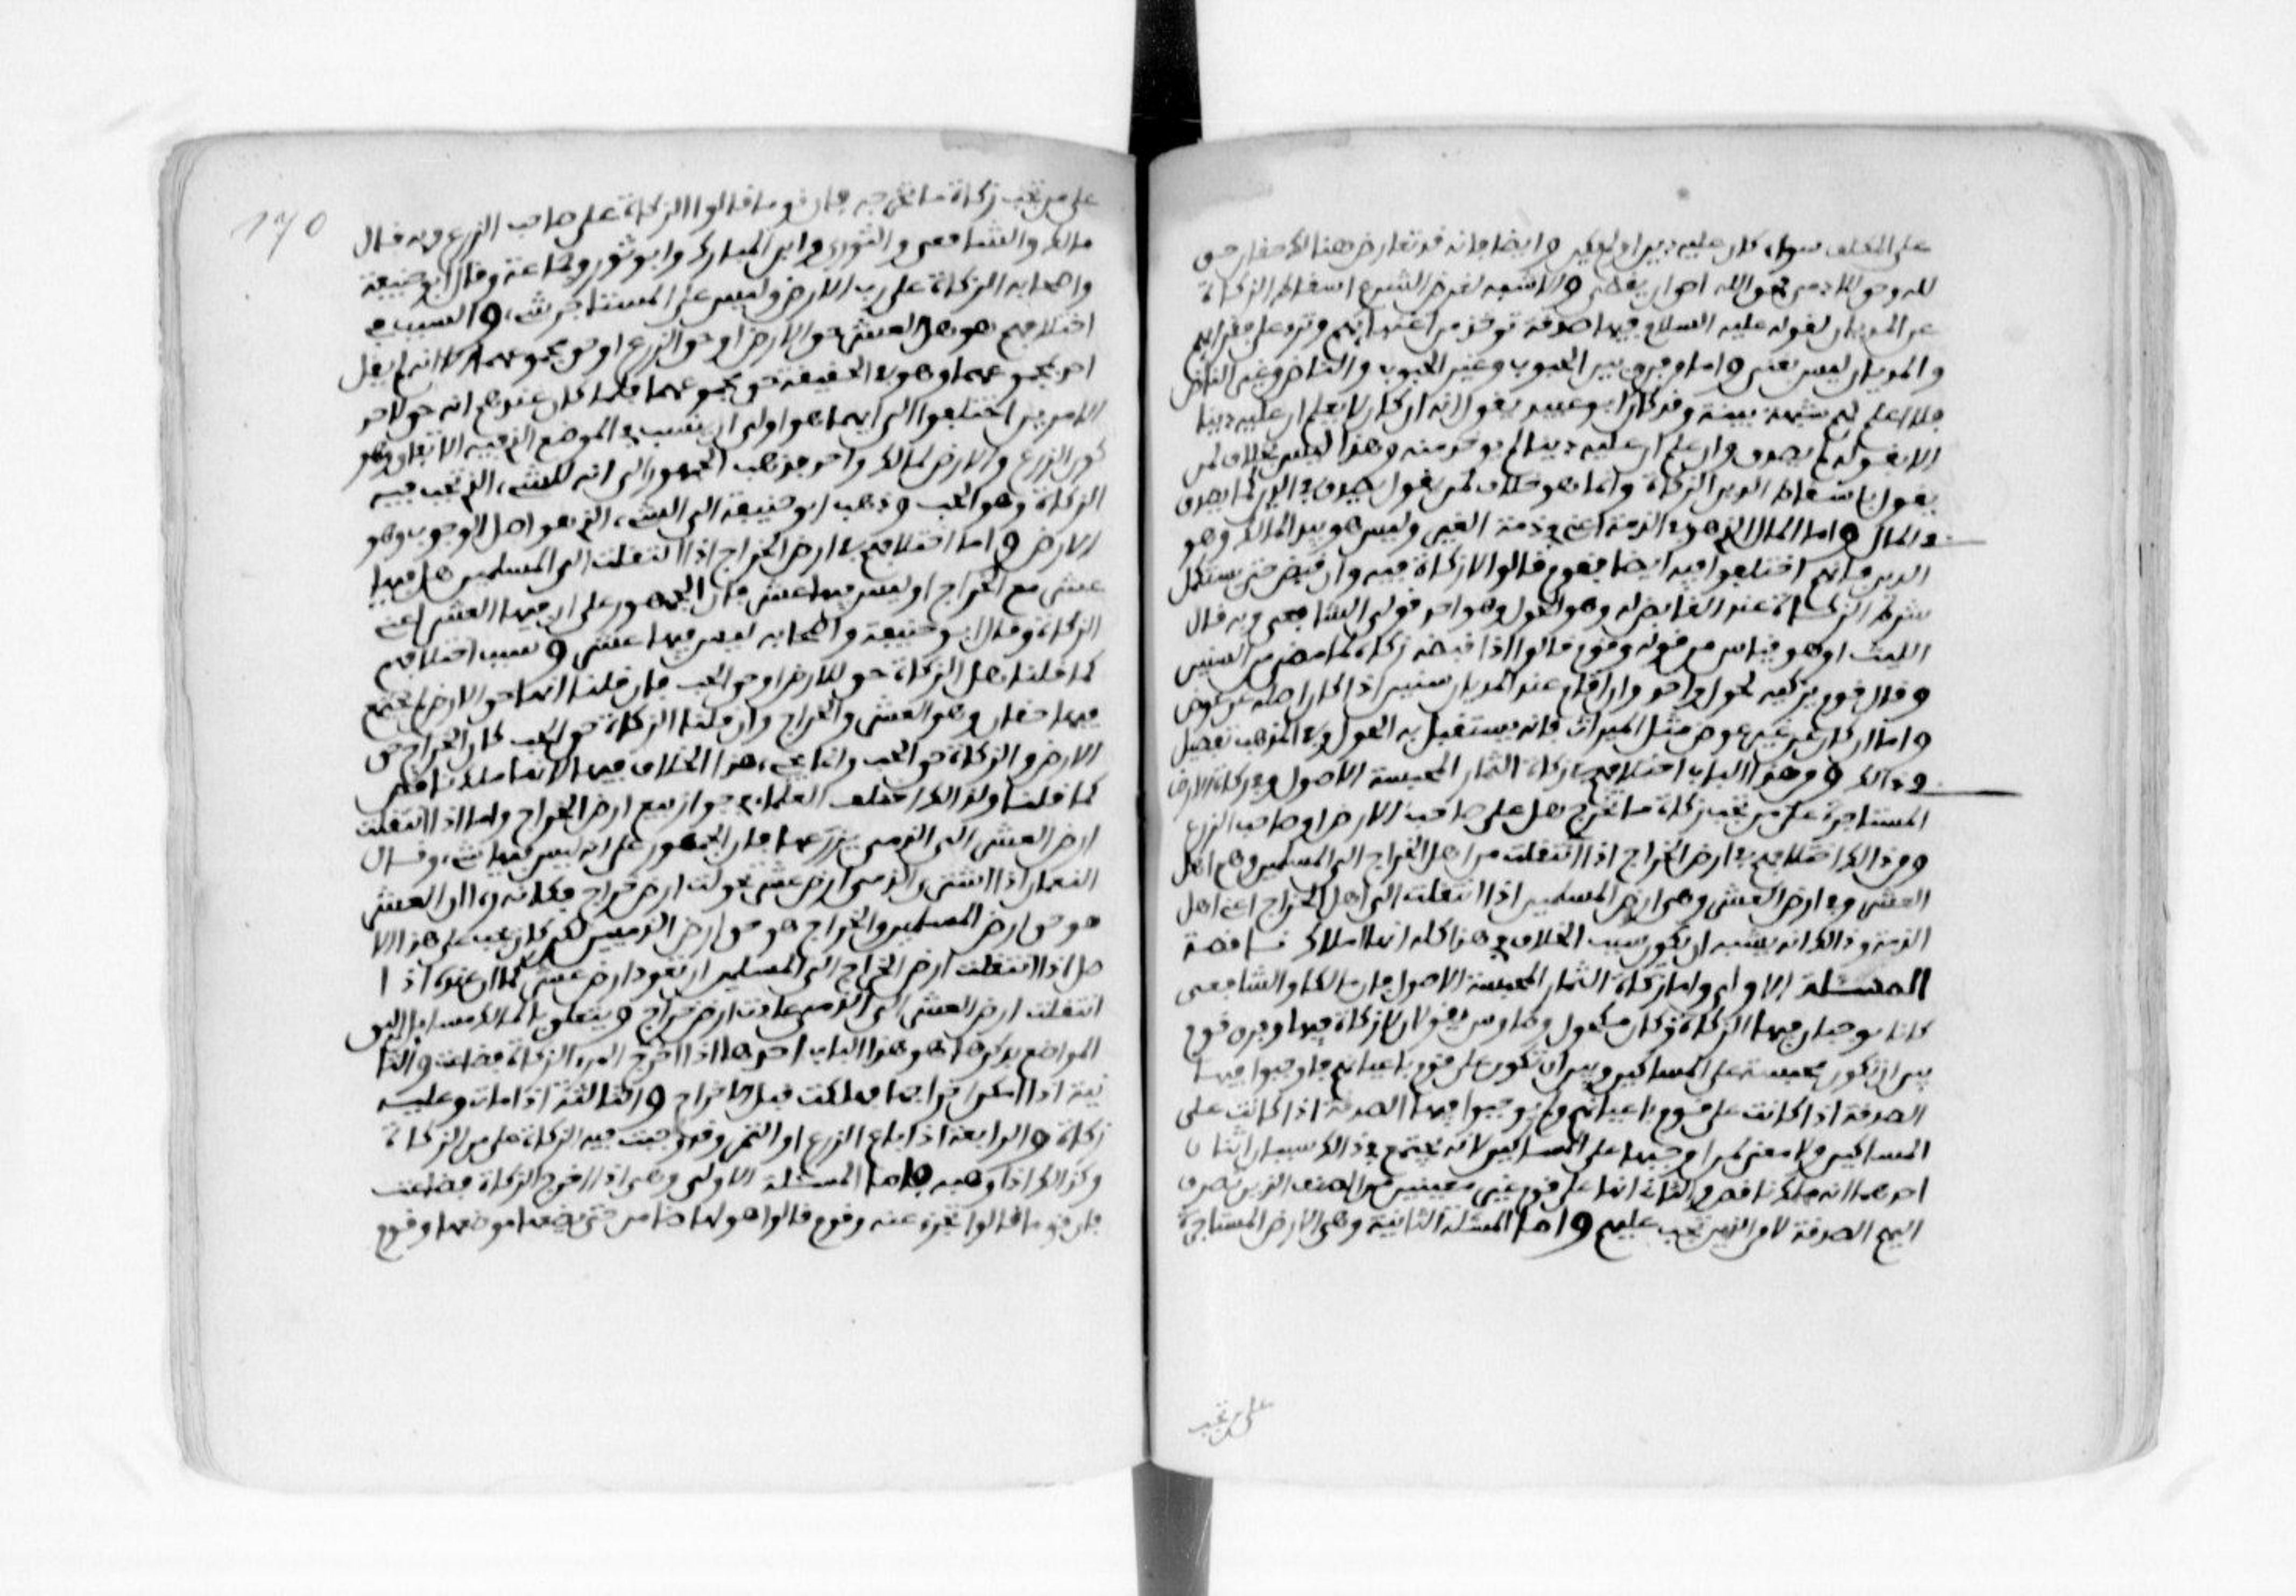 على المكلف سواء كان عليه دين او لم يكن وايضا فانه قد تعارض هنالك حقان حق
لله وحق للادمي وحق الله احق ان يقضى والاشبه بغرض الشرع اسقاط الزكاة
عن المديان لقوله عليه السلام فيها صدقة توخذ من اغنيائهم وترد على فقرائهم
والمديان ليس بغني واما من فرق بين الحبوب وغير الحبوب والناض وغير الناض
فلا اعلم له شبهة بينة وقد كان ابو عبيد يقول انه ان كان لا يعلم ان عليه دينا
الا بقوله لم يصدق وان علم ان عليه دينا لم يوخذ منه وهذا ليس بخلاف لمن
يقول باسقاط الدين الزكاة وانما هو خلاف لمن يقول يصدق في الدين كما يصدق
في المال واما المال الذي هو في الذمة اعني في ذمة الغير وليس هو بيد المالك وهو
الدين فانهم اختلفوا فيه ايضا فقوم قالوا لا زكاة فيه وان قبض حتى يستكمل
شرط الزكاة عند القابض له وهو الحول وهو احد قولي الشافعي وبه قال
الليث او هو قياس من قوله وقوم قالوا اذا قبضه زكاه لما مضى من السنين
وقال قوم يزكيه لحول واحد وان اقام عند المديان سنين اذا كان اصله عن عوض
واما ان كان عن غير عوض مثل الميراث فانه يستقبل به الحول وفي المذهب تفصيل
في ذالك ومن هذا الباب اختلافهم في زكاة الثمار المحبسة الاصول وفي زكاة الارض
المستاجرة على من تجب زكاة ما تخرج هل على صاحب الارض او صاحب الزرع
ومن ذالك اختلافهم في ارض الخراج اذا انتقلت من اهل الخراج الى المسلمين وهم اهل
العشر وفي ارض العشر وهي ارض المسلمين اذا انتقلت الى اهل الخراج اعني اهل
الذمة وذالك انه يشبه ان يكون سبب الخلاف في هذا كله انها املاك ناقصة
المسئلة الاولى واما زكاة الثمار المحبسة الاصول فان مالكا والشافعي
كانا يوجبان فيها الزكاة وكان مكحول وطاوس يقولان لا زكاة فيها وفرق قوم
بين ان تكون محبسة على المساكين وبين ان تكون على قوم باعيانهم فاوجبوا فيها
الصدقة اذا كانت على قوم باعيانهم ولم يوجبوا فيها الصدقة اذا كانت على
المساكين ولا معنى لمن اوجبها على المساكين لانه يجتمع في ذالك سببان اثنان
احدهما انه ملك ناقص والثاني انها على قوم غير معينين من الصنف الذين تصرف
اليهم الصدقة لا من الذين تجب عليهم واما المسئلة الثانية وهي الارض المستاجرة
على من تجب
170
على من تجب زكاة ما تخرجه فان قوما قالوا الزكاة على صاحب الزرع وبه قال
مالك والشافعي والثوري وابن المبارك وابو ثور وجماعة وقال ابو حنيفة
واصحابه الزكاة على رب الارض وليس على المستاجر شيء والسبب في
اختلافهم هو هل العشر حق الارض او حق الزرع او حق مجموعهما الا انه لم يقل
احد بمجموعهما وهو في الحقيقة حق مجموعهما فلما كان عندهم انه حق لاحد
الامرين اختلفوا الى ايهما هو اولى ان ينسب في الموضع الذي فيه الاتفاق وهو
كون الزرع والارض لمالك واحد فذهب الجمهور الى انه للشيء الذي تجب فيه
الزكاة وهو الحب وذهب ابو حنيفة الى الشيء الذي هو اصل الوجوب وهو
الارض واما اختلافهم في ارض الخراج اذا انتقلت الى المسلمين هل فيها
عشر مع الخراج او ليس فيها عشر فان الجمهور على ان فيها العشر اعني
الزكاة وقال ابو حنيفة واصحابه ليس فيها عشر وسبب اختلافهم
كما قلنا هل الزكاة حق للارض او حق الحب فان قلنا انها حق الارض لم يجتمع
فيها حقان وهو العشر والخراج وان قلنا الزكاة حق الحب كان الخراج حق
الارض والزكاة حق الحب وانما يجيء هذا الخلاف فيها لانها ملك ناقص
كما قلنا ولذالك اختلف العلماء في جواز بيع ارض الخراج واما اذا انتقلت
ارض العشر الى الذمي يزرعها فان الجمهور على انه ليس فيها شيء وقال
النعمان اذا اشترى الذمي ارض عشر تحولت ارض خراج فكانه رءا ان العشر
هو حق ارض المسلمين والخراج هو حق ارض الذميين لكن كان يجب على هذا الا
صل اذا انتقلت ارض الخراج الى المسلمين ان تعود ارض عشر كما ان عنده اذا
انتقلت ارض العشر الى الذمي عادت ارض خراج ويتعلق بالمالك مسائل اليق
المواضع بذكرها هو هذا الباب احدها اذا اخرج المرء الزكاة فضاعت والثا
نية اذا امكن اخراجها فهلكت قبل الاخراج والثالثة اذا مات وعليه
زكاة والرابعة اذا باع الزرع او الثمر وقد وجبت فيه الزكاة على من الزكاة
وكذالك اذا وهبه فاما المسئلة الاولى وهي اذا اخرج الزكاة فضاعت
فان قوما قالوا تجزئ عنه وقوم قالوا هو لها ضامن حتى يضعها موضعها وقوم